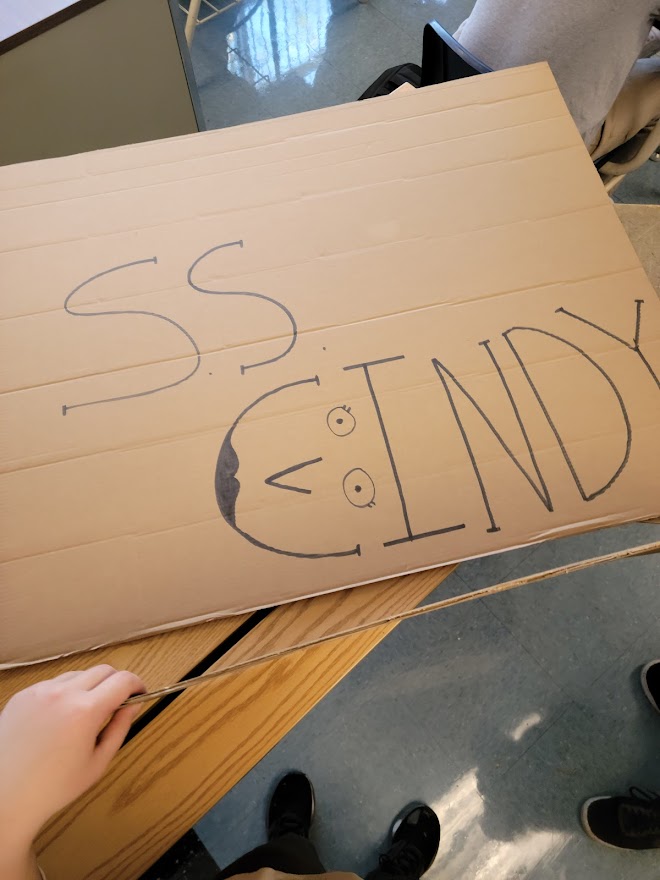 S.S.
CINDY